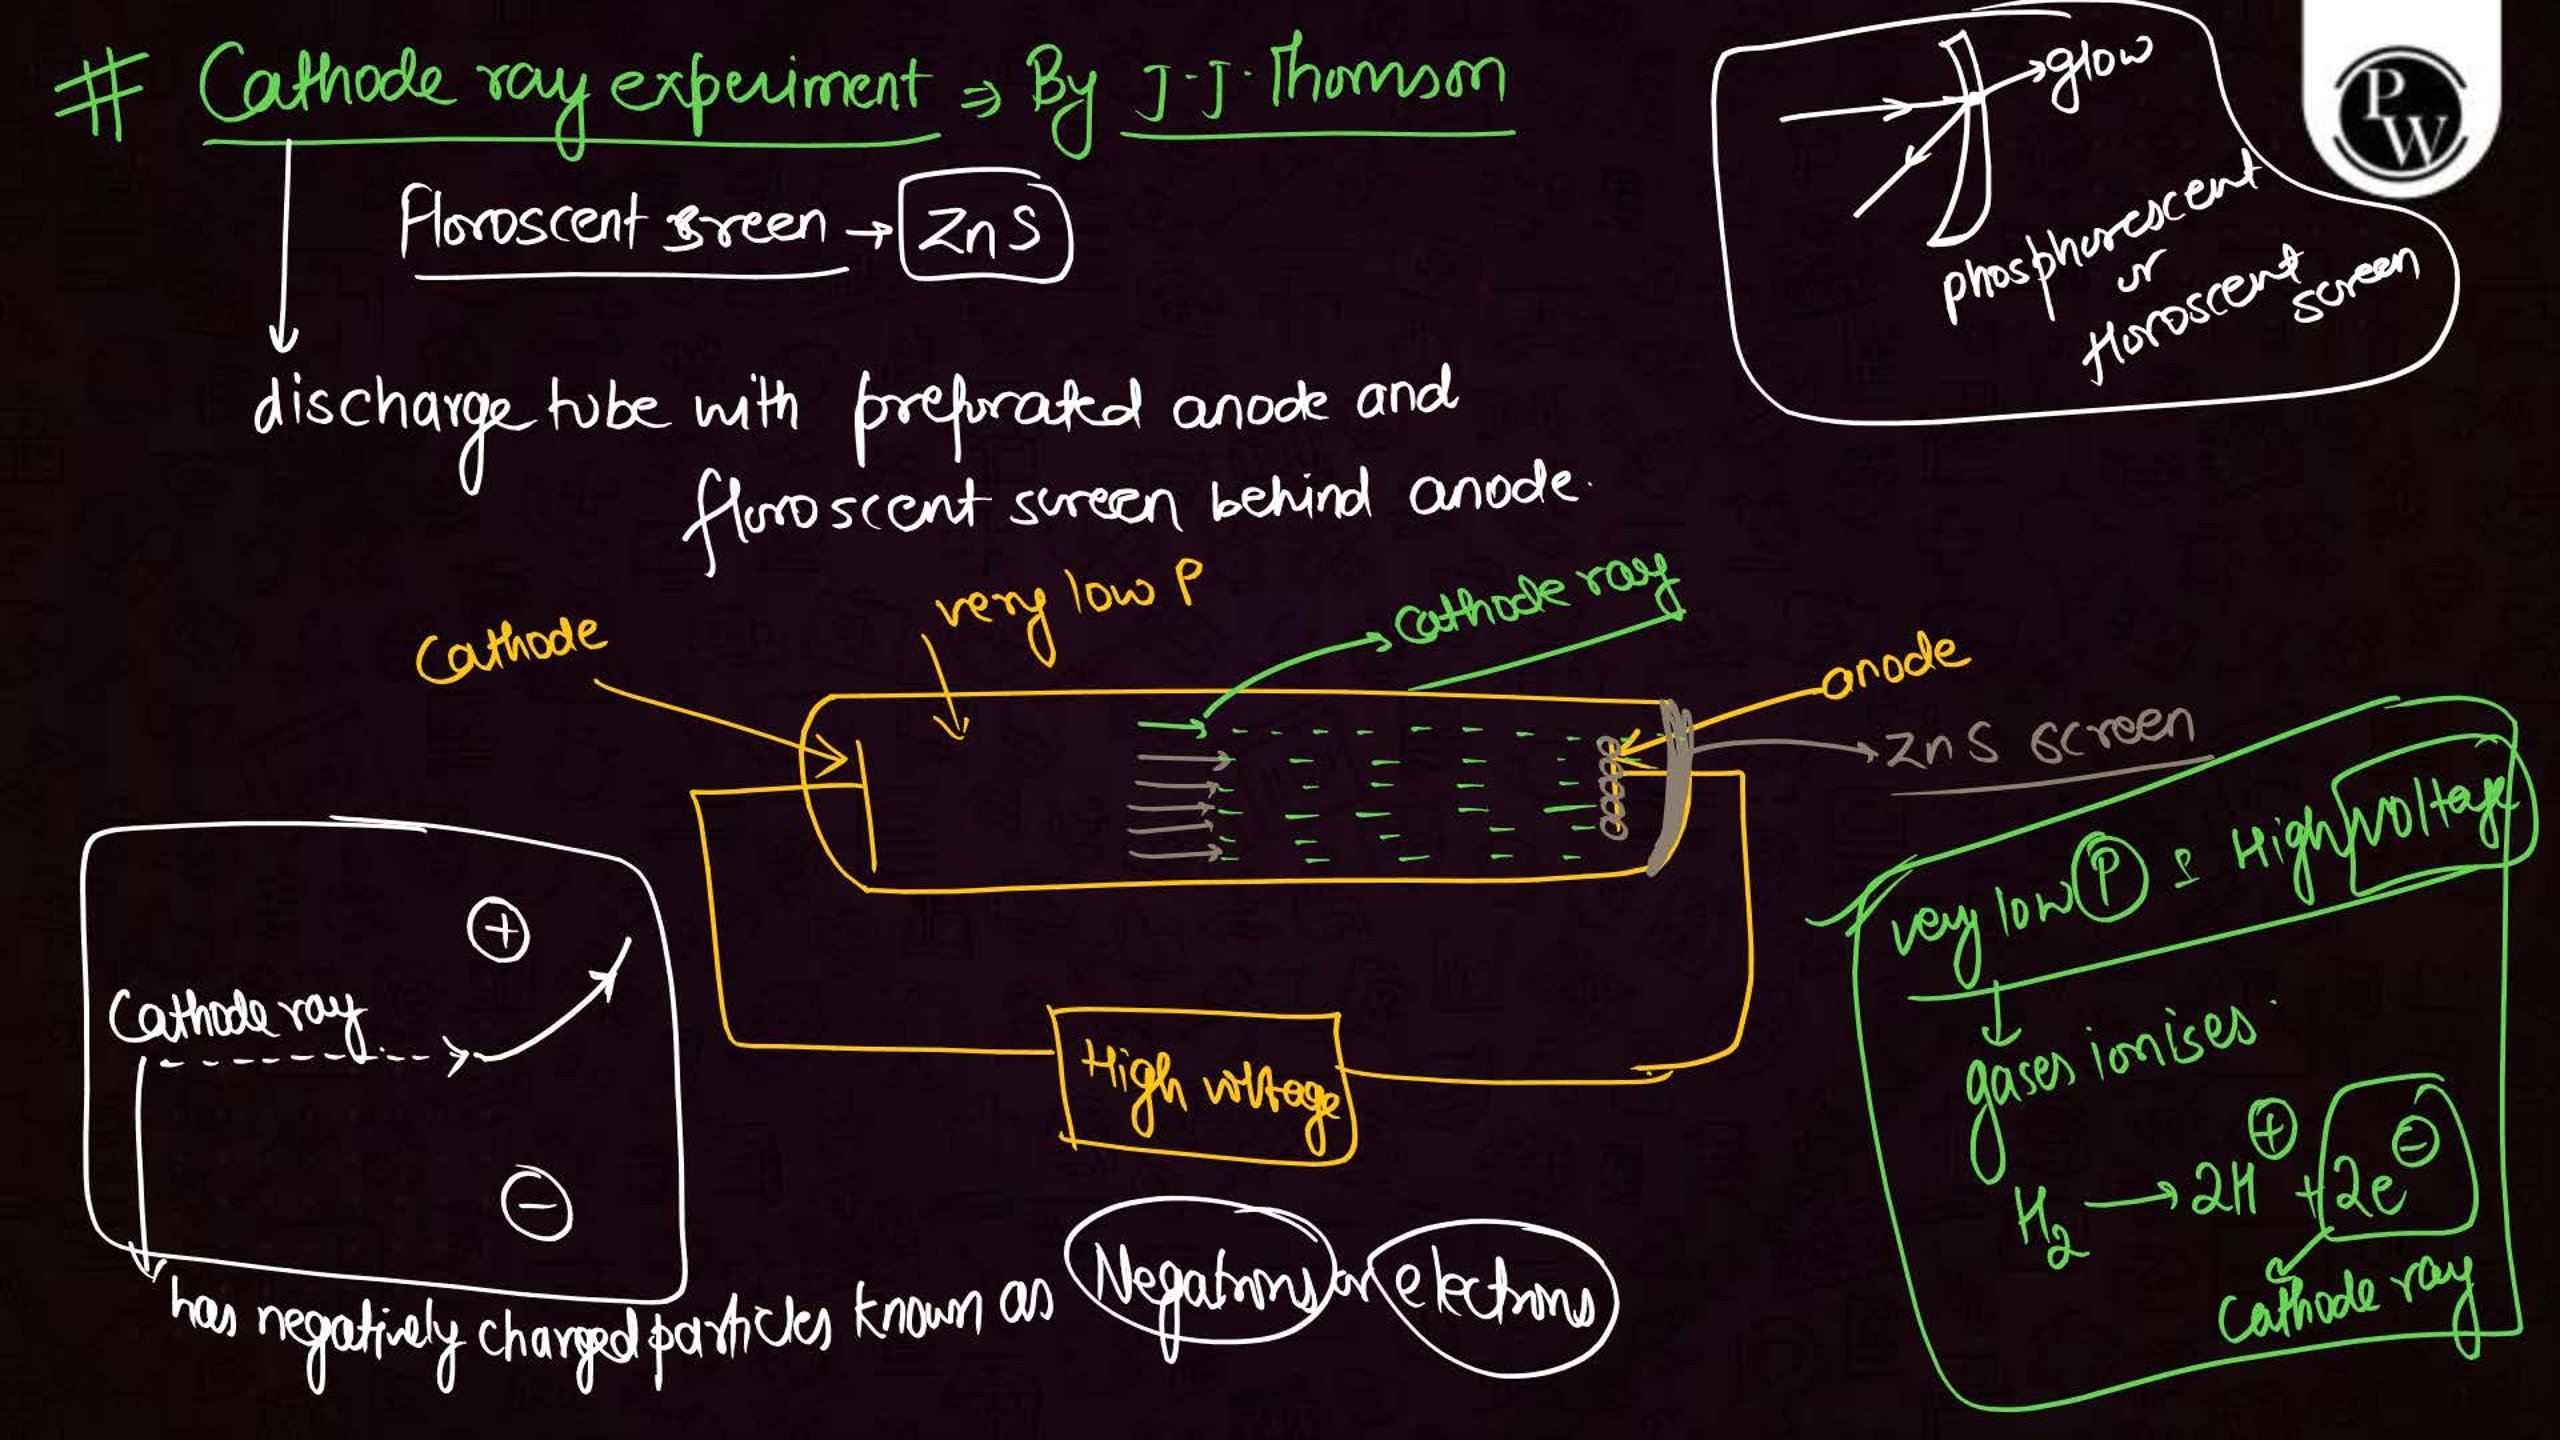 # Cathode ray experiment ⇒ By J.J. Thomson
Floroscent screen → ZnS
discharge tube with preforated anode and
floroscent screen behind anode.
glow
phosphorescent
or
floroscent
screen
PW
Cathode
very low P
Cathode ray
anode
ZnS screen
High voltage
Cathode ray
+
−
has negatively charged particles known as Negatrons or electrons
very low P & High voltage
gases ionises.
H₂ → 2H⁺ + 2e⁻
Cathode ray